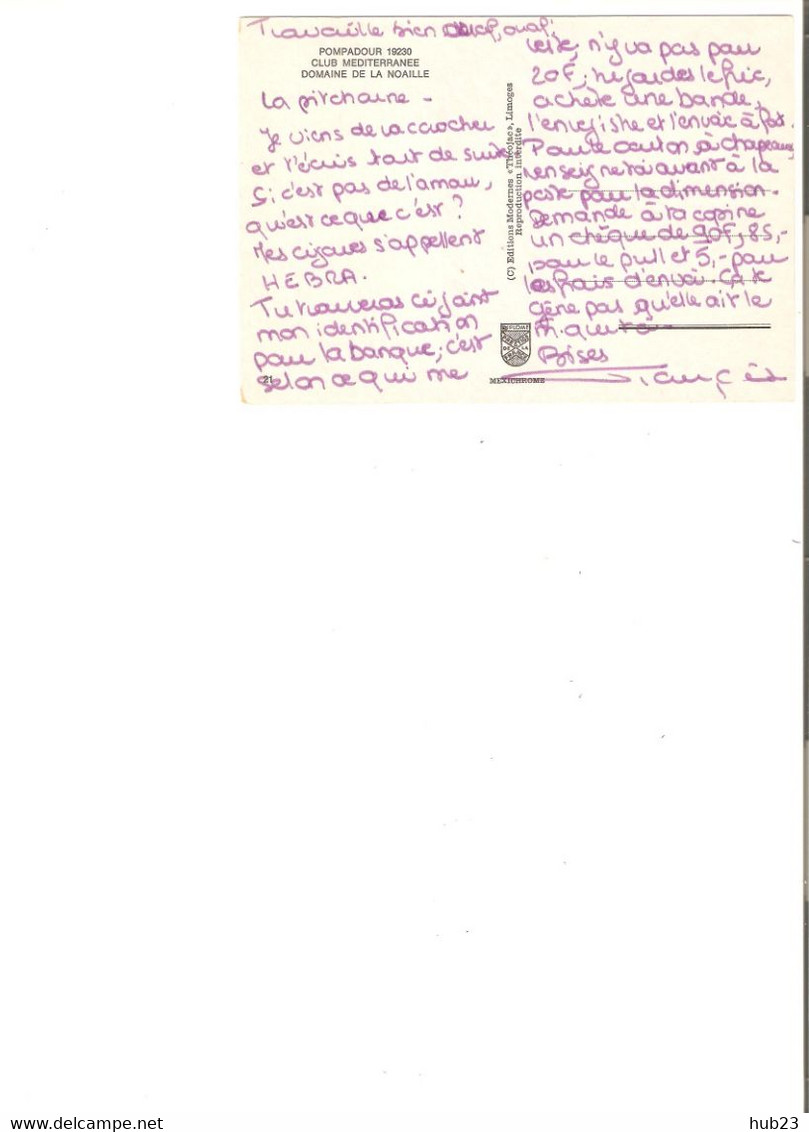 Travaille bien
POMPADOUR 19230
CLUB MEDITERRANEE
DOMAINE DE LA NOAILLE
La pitchoune -
Je viens de raccrocher
et t'écris tout de suite
Si c'est pas de l'amour,
qu'est ce que c'est?
Mes cigares s'appellent
HEBRA.
Tu trouveras ci joint
mon identification
pour la banque, c'est
selon ce qui me
21
(C) Editions Modernes «Théojac», Limoges
Reproduction Interdite
MEXICHROME
reste, n'y va pas pour
20F; regardes le fric,
achète une bande,
l'enregistre et l'envoie à
Pour le carton à chapeaux,
renseigne toi avant à la
poste pour la dimension.
Demande à ta copine
un chèque de 90F, 85,-
pour le pull et 5,- pour
les frais d'envoi. Ça te
gêne pas qu'elle ait le
Bises
hub23